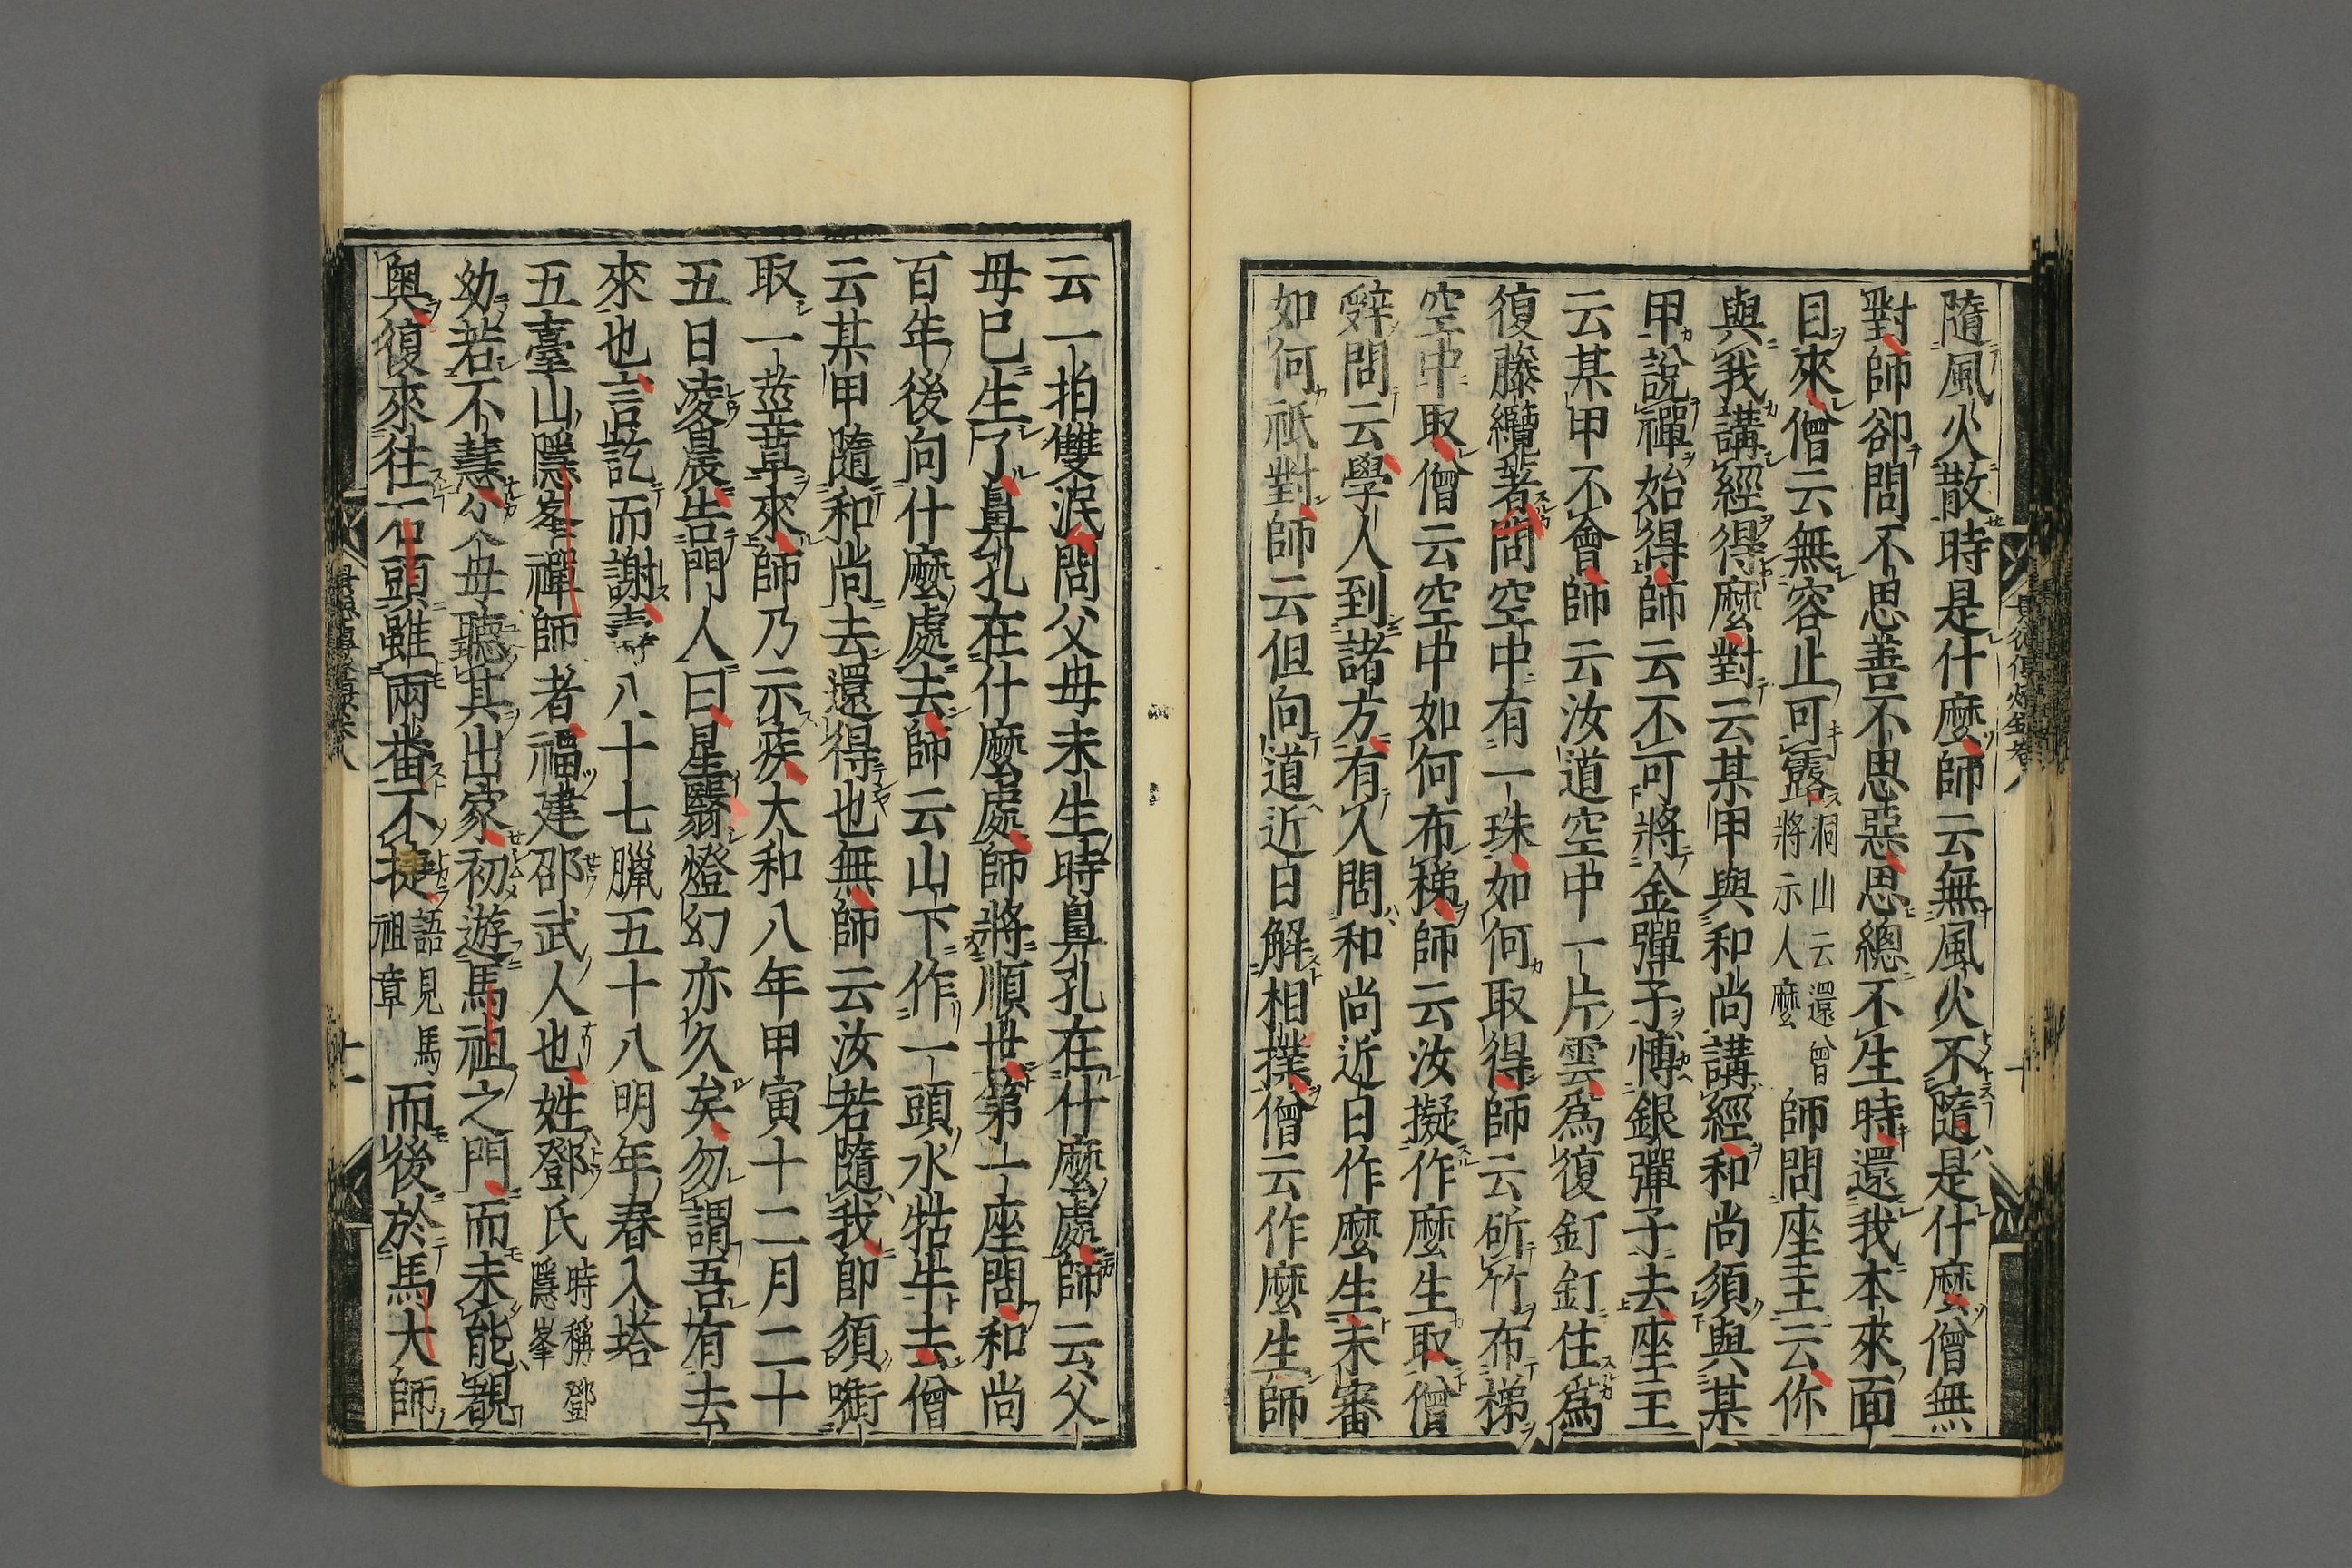 隨風火散時是什麼師云無風火不隨是什麼僧無
對師卻問不思善不思惡思總不生時還我本來面
目來僧云無容止可露洞山云還曾將示人麼師問座主云你
與我講經得麼對云某甲與和尚講經和尚須與某
甲說禪始得師云不可將金彈子博銀彈子去座主
云某甲不會師云汝道空中一片雲爲復釘釘住爲
復藤纜著問空中有一珠如何取得師云斫竹布梯
空中取僧云空中如何布梯師云汝擬作麼生取僧
辭問云學人到諸方有人問和尚近日作麼生未審
如何祇對師云但向道近日解相撲僧云作麼生師
云一拍雙泯問父母未生時鼻孔在什麼處師云父
母已生了鼻孔在什麼處師將順世第一座問和尚
百年後向什麼處去師云山下作一頭水牯牛去僧
云某甲隨和尚去還得也無師云汝若隨我即須銜
取一莖草來師乃示疾大和八年甲寅十二月二十
五日凌晨告門人曰星翳燈幻亦久矣勿謂吾有去
來也言訖而謝壽八十七臘五十八明年春入塔
五臺山隱峯禪師者福建邵武人也姓鄧氏時稱鄧隱峯
幼若不慧父母聽其出家初遊馬祖之門而未能覩
奧復來往石頭雖兩番不捷語見馬祖章而後於馬大師